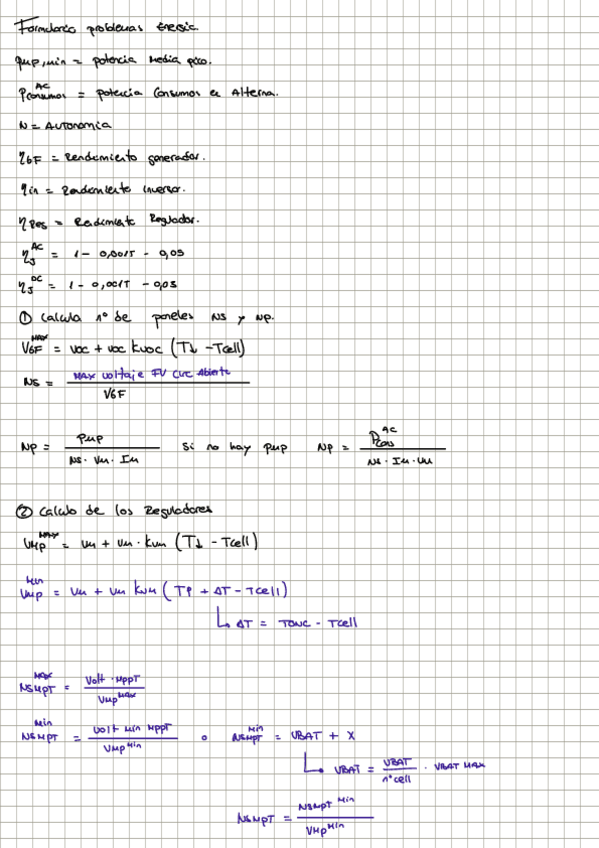 Formulario problemas Energia.
PMP,min = potencia media pico.
P_consumos^AC = potencia Consumos en Alterna.
N = Autonomia
ηGF = Rendimiento generador.
ηin = Rendimiento Inversor.
ηReg = Rendimiento Regulador.
ηJ^AC = 1 - 0,0015 - 0,05
ηJ^DC = 1 - 0,0015 - 0,05
① Calcula nº de paneles NS y Np.
VGF^MAX = VOC + VOC kVOC (T↓ - Tcell)
NS = MAX Voltaje FV Circ Abierto / VGF
Np = Pmp / NS · Vm · Im   Si no hay pmp   Np = Pcons^AC / NS · Im · Vm
② Calculo de los Reguladores
Vmp^MAX = Vm + Vm · kvm (T↓ - Tcell)
Vmp^Min = Vm + Vm kvm (T↑ + ΔT - Tcell)
↳ ΔT = TONC - Tcell
NSMPT^MAX = Volt · MPPT / Vmp^MAX
NSMPT^Min = Volt Min MPPT / Vmp^Min   o   NSMPT^Min = VBAT + X
↳ VBAT = VBAT / nºcell · VBAT MAX
NSMPT = NSMPT^Min / Vmp^Min